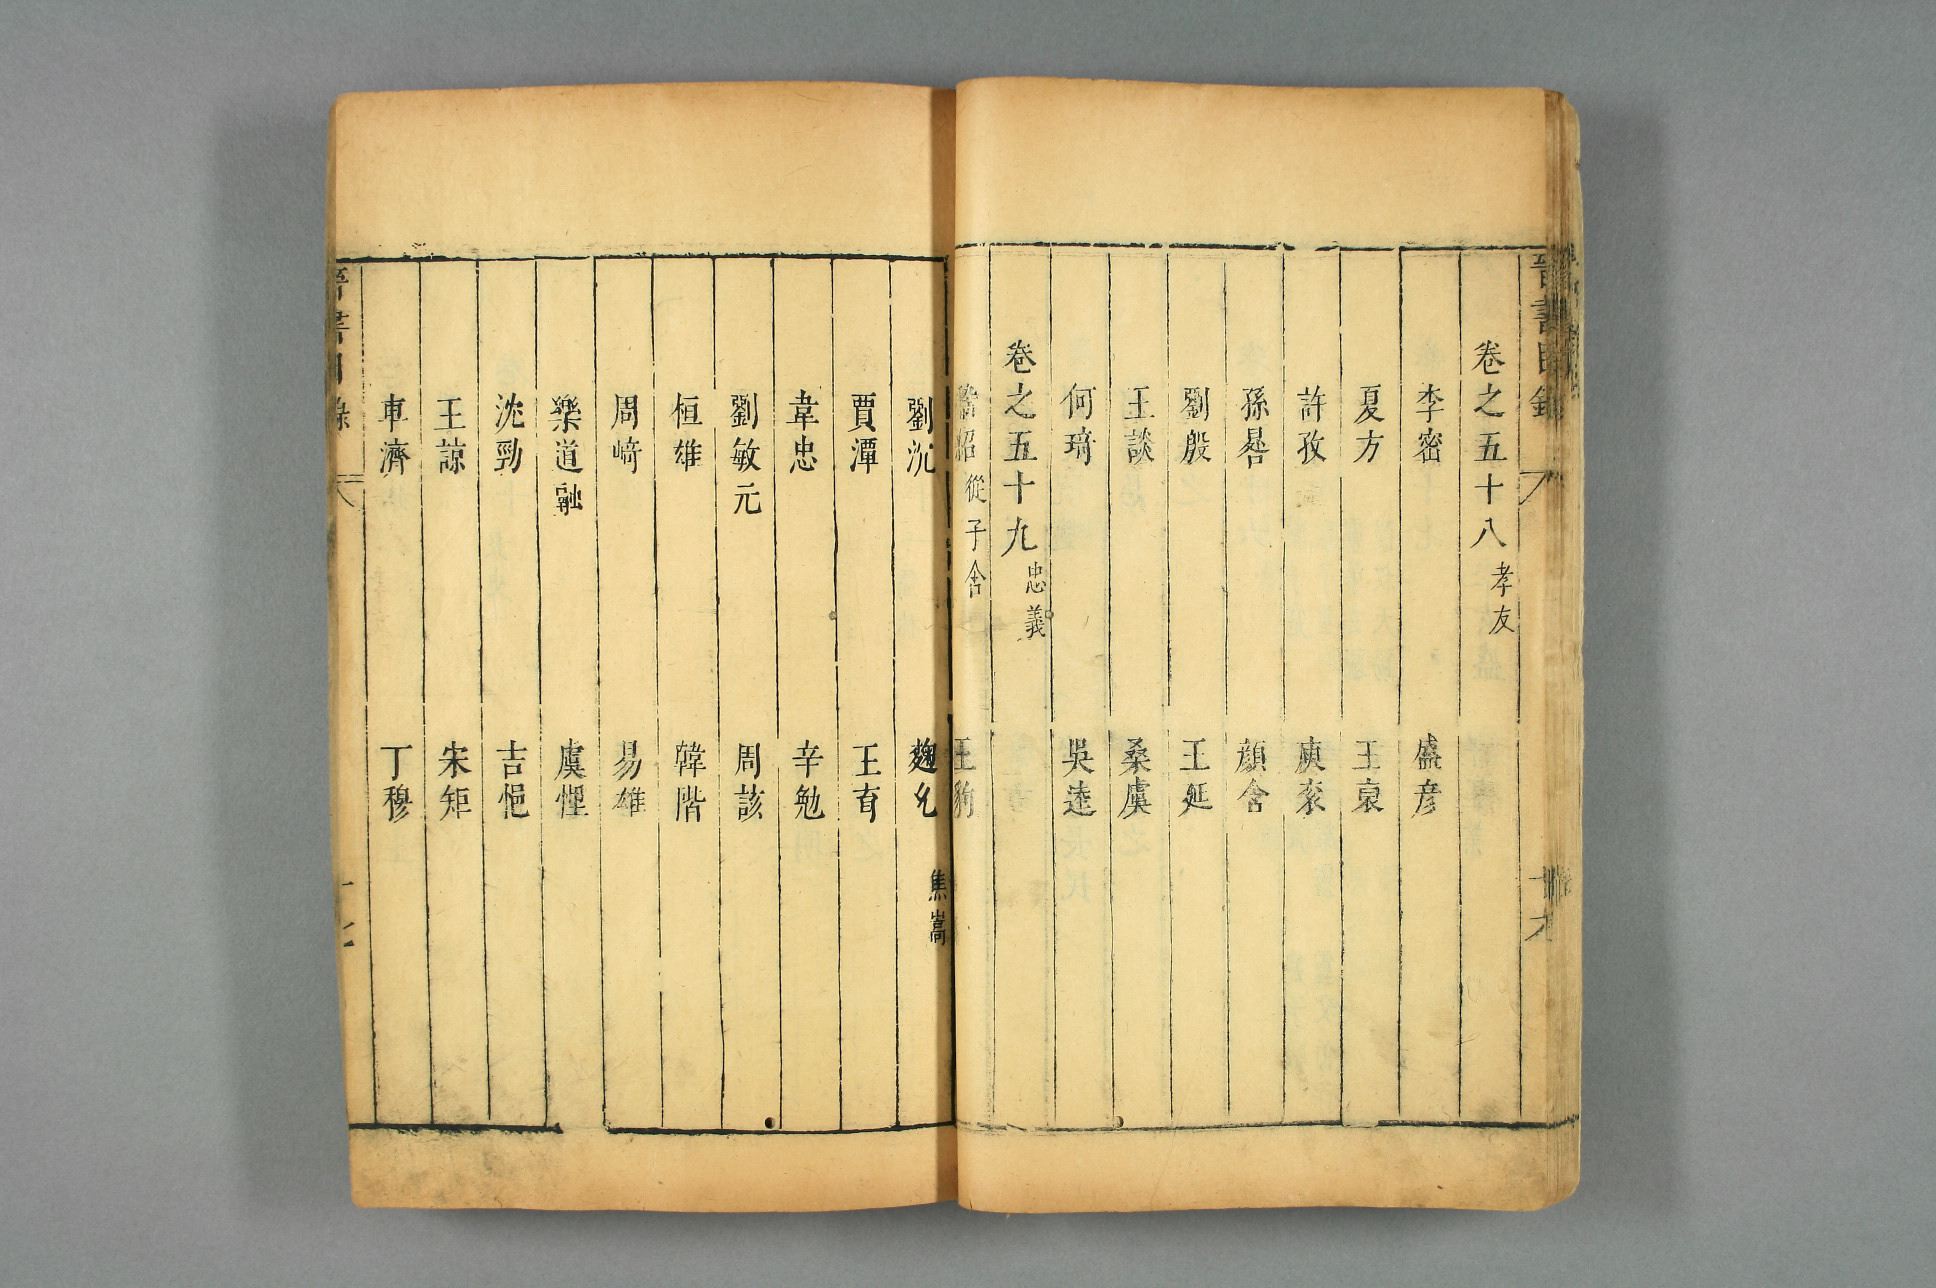 晉書目錄
卷之五十八 孝友
李密 盛彥
夏方 王裒
許孜 庾袞
孫晷 顏含
劉殷 王延
王談 桑虞
何琦 吳逵
卷之五十九 忠義
嵇紹 從子含 王豹
劉沉 麴允 焦嵩
賈渾 王育
韋忠 辛勉
劉敏元 周該
桓雄 韓階
周崎 易雄
樂道融 虞悝
沈勁 吉挹
王諒 宋矩
車濟 丁穆